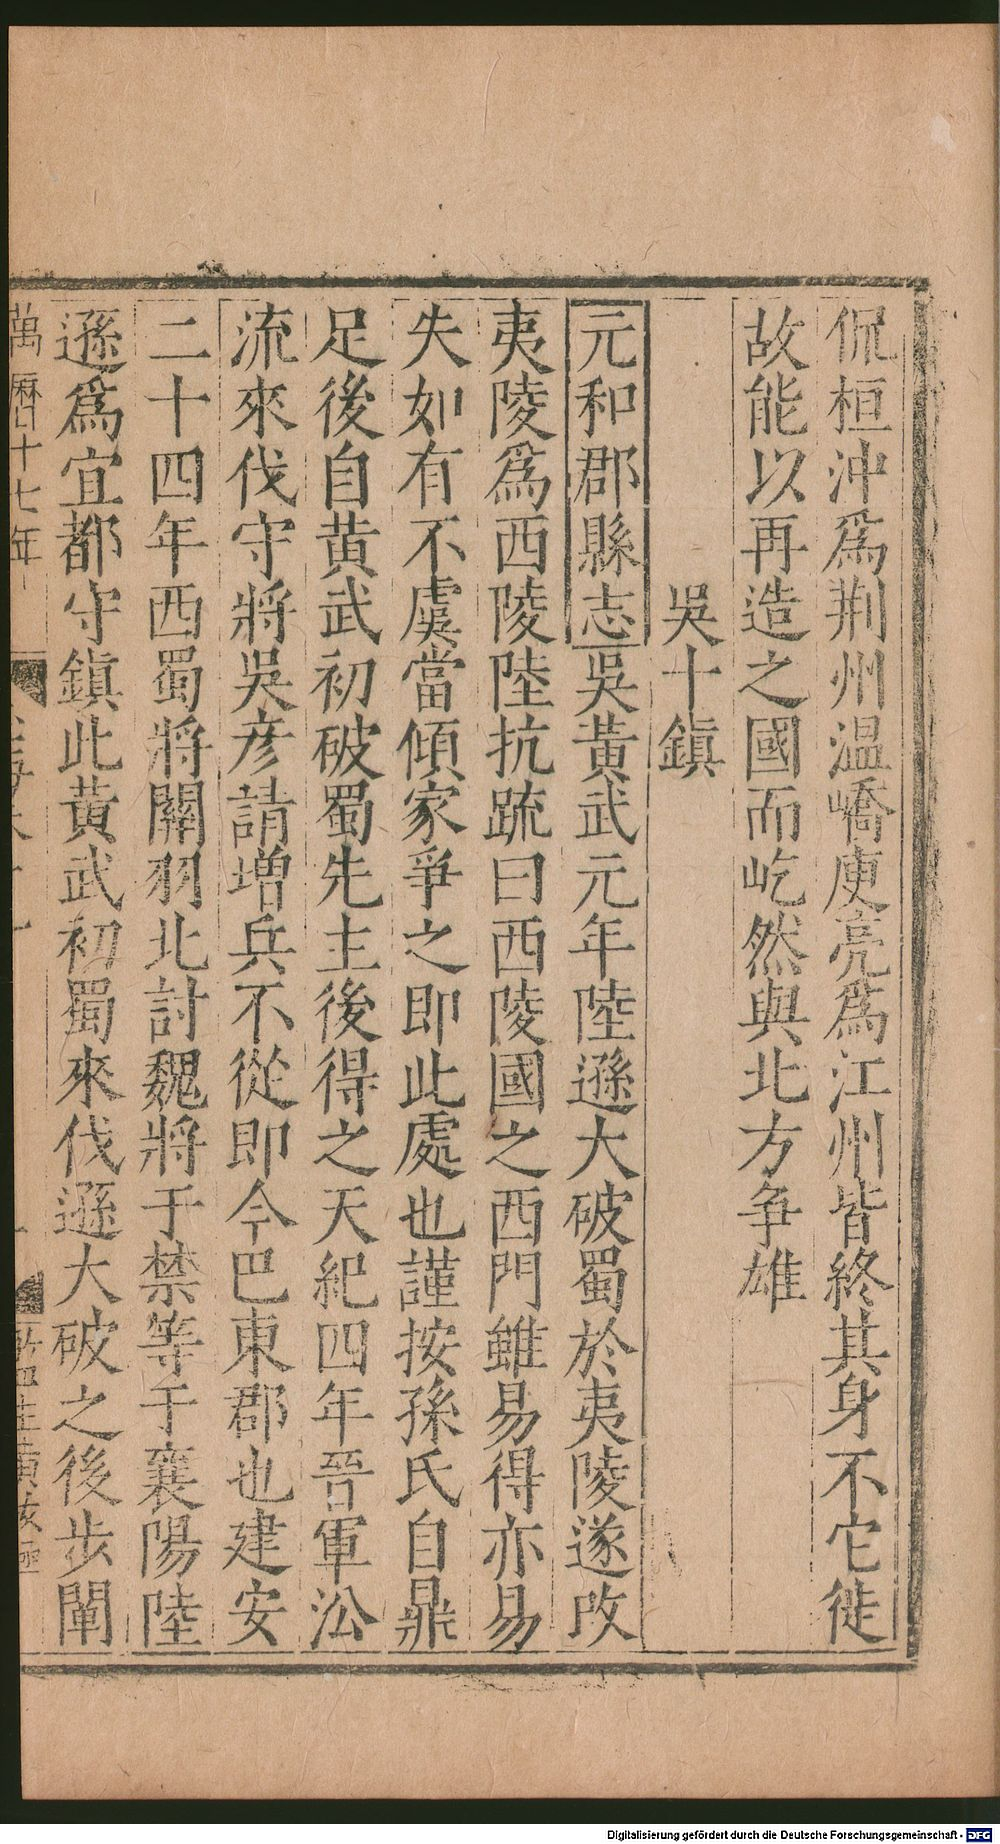 侃桓沖爲荆州温嶠庾亮爲江州皆終其身不它徙
故能以再造之國而屹然與北方争雄
吳十鎮
元和郡縣志吳黃武元年陸遜大破蜀於夷陵遂改
夷陵爲西陵陸抗疏曰西陵國之西門雖易得亦易
失如有不虞當傾家爭之即此處也謹按孫氏自鼎
足後自黄武初破蜀先主後得之天紀四年晉軍㳂
流來伐守將吳彦請增兵不從即今巴東郡也建安
二十四年西蜀將關羽北討魏將于禁等于襄陽陸
遜爲宜都守鎮此黄武初蜀來伐遜大破之後步闡
萬曆十七年
Digitalisierung gefördert durch die Deutsche Forschungsgemeinschaft - DFG